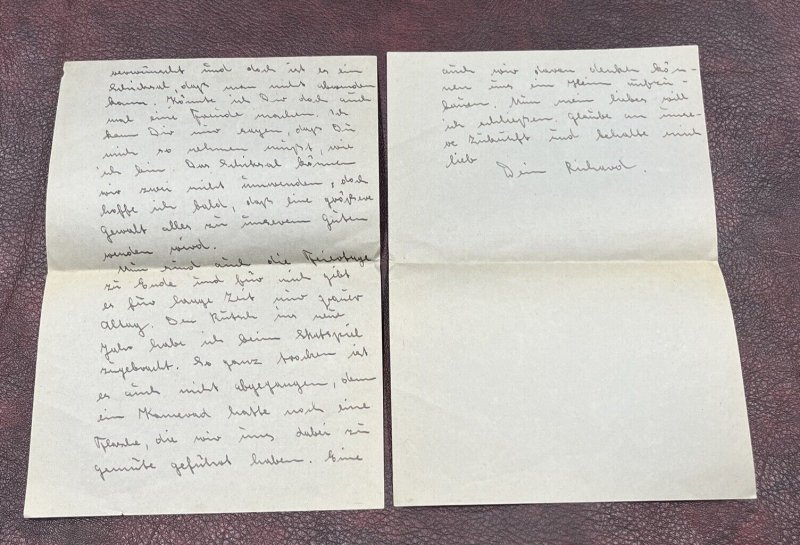 verwünscht und doch ist es ein
Schicksal, dass man nicht abwenden
kann. Könnte ich Dir doch auch
mal eine Freude machen. Ich
kann Dir nur sagen, dass Du
mich so nehmen musst, wie
ich bin. Das Schicksal können
wir zwei nicht umwenden, doch
hoffe ich bald, dass eine grössere
Gewalt alles zu unserem Guten
wenden wird.
Nun sind auch die Feiertage
zu Ende und für mich gibt
es für lange Zeit nur grauer
Alltag. Den Rutsch ins neue
Jahr habe ich beim Skatspiel
zugebracht. So ganz trocken ist
es auch nicht abgegangen, denn
ein Kamerad hatte noch eine
Flasche, die wir uns dabei zu
gemüte geführt haben. Eine
auch wir daran denken kön-
nen uns ein Heim aufzu-
bauen. Nun mein liebes will
ich schliessen. Glaube an unse-
re Zukunft und behalte mich
lieb
Dein Richard.